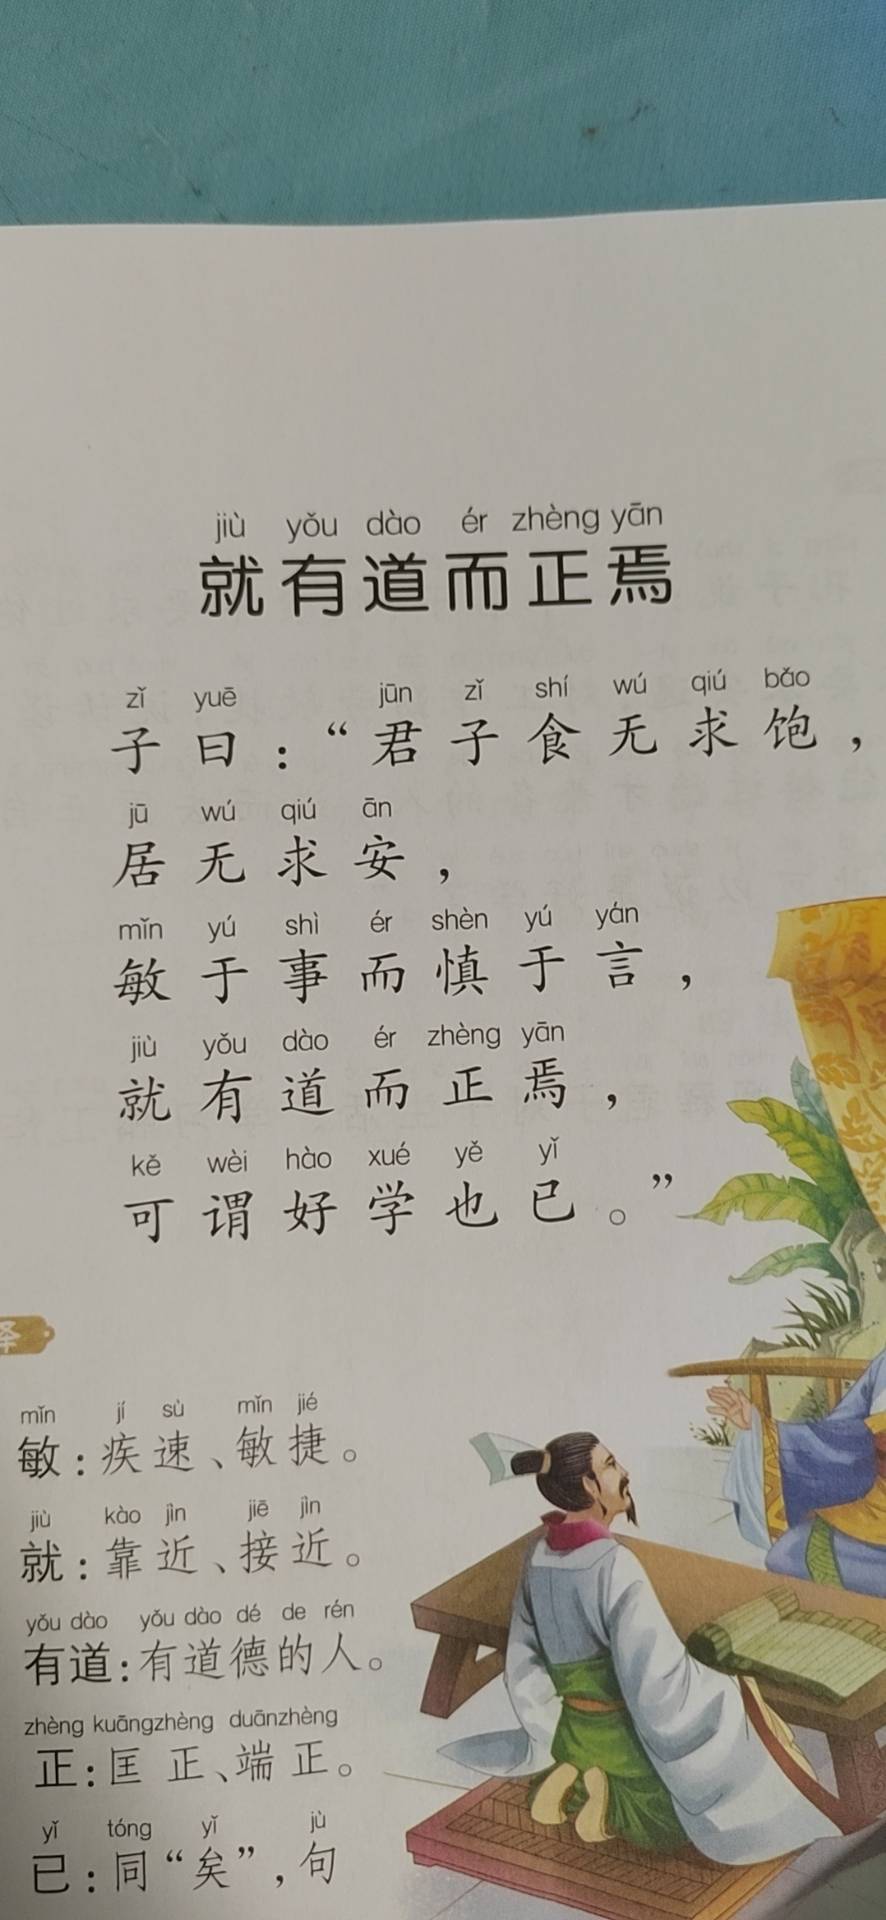 jiù yǒu dào ér zhèng yān
就有道而正焉
zǐ yuē jūn zǐ shí wú qiú bǎo
子曰：“君子食无求饱，
jū wú qiú ān
居无求安，
mǐn yú shì ér shèn yú yán
敏于事而慎于言，
jiù yǒu dào ér zhèng yān
就有道而正焉，
kě wèi hào xué yě yǐ
可谓好学也已。”
译
mǐn jí sù mǐn jié
敏：疾速、敏捷。
jiù kào jìn jiē jìn
就：靠近、接近。
yǒu dào yǒu dào dé de rén
有道：有道德的人。
zhèng kuāngzhèng duānzhèng
正：匡正、端正。
yǐ tóng yǐ jù
已：同“矣”，句